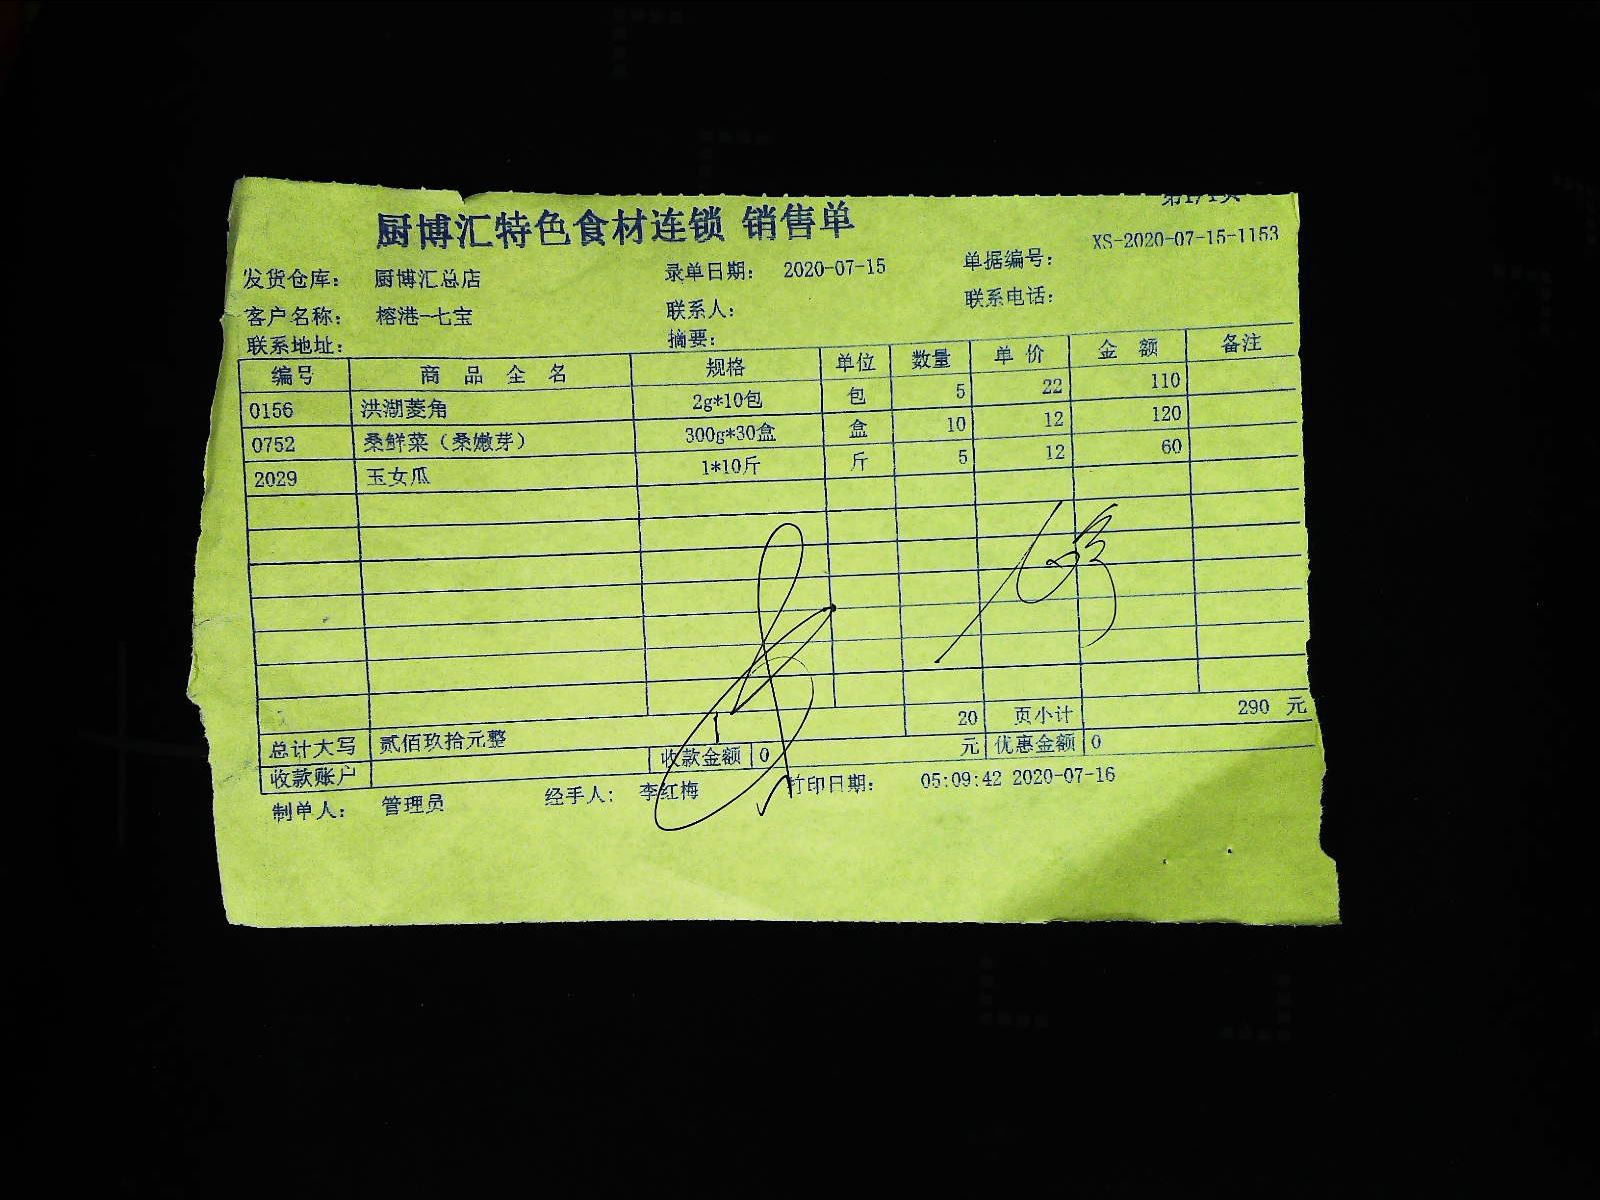 第1/1页
厨博汇特色食材连锁 销售单
发货仓库： 厨博汇总店 录单日期： 2020-07-15 单据编号： XS-2020-07-15-1153
客户名称： 榕港-七宝 联系人： 联系电话：
联系地址： 摘要：
编号 商 品 全 名 规格 单位 数量 单 价 金 额 备注
0156 洪湖菱角 2g*10包 包 5 22 110
0752 桑鲜菜（桑嫩芽） 300g*30盒 盒 10 12 120
2029 玉女瓜 1*10斤 斤 5 12 60
20 页小计 290 元
总计大写 贰佰玖拾元整
收款账户 收款金额 0 元 优惠金额 0
制单人： 管理员 经手人： 李红梅 打印日期： 05:09:42 2020-07-16